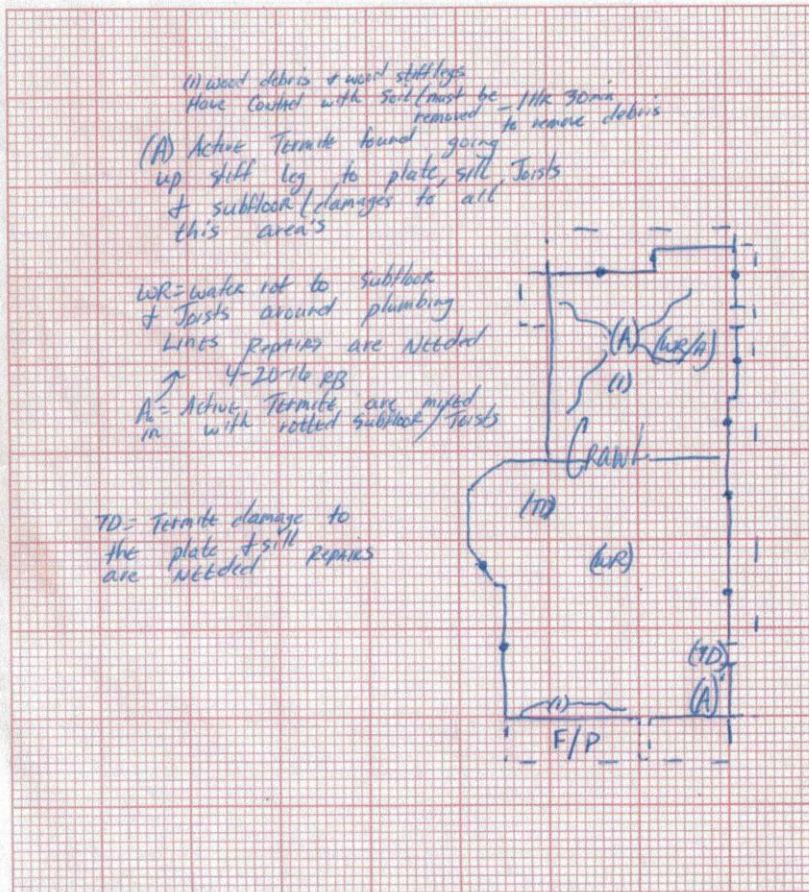 (1) wood debris & wood stiff legs
Have Conted with Soil (must be
removed - 1 Hr 30 min
to remove debris
(A) Active Termite found going
up stiff leg to plate, sill, Joists
& subfloor (damages to all
this area's
WR = water rot to subfloor
& Joists around plumbing
Lines Repairs are Needed
4-20-16 RB
A = Active Termite are mixed
in with rotted subfloor/Joists
TD = Termite damage to
the plate & sill Repairs
are Needed
(A) (WR/A)
(1)
Crawl
(TD)
(WR)
(TD)
(A)
(1)
F/P